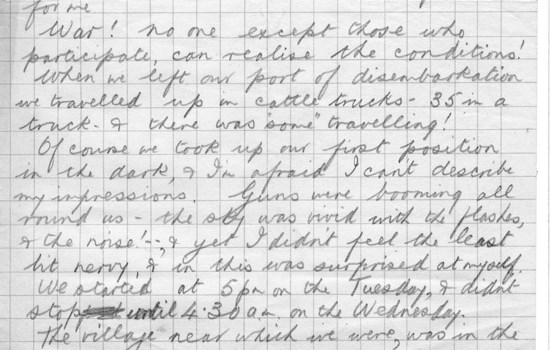 for me
War! no one except those who
participate, can realise the conditions!
When we left our port of disembarkation
we travelled up in cattle trucks - 35 in a
truck - & there was "some" travelling!
Of course we took up our first position
in the dark, & I'm afraid I can't describe
my impressions. Guns were booming all
round us - the sky was vivid with the flashes,
& the noise! --, & yet I didn't feel the least
bit nervy, & in this was surprised at myself.
We started at 5pm on the Tuesday, & didn't
stop until 4.30 a.m. on the Wednesday.
The village near which we were, was in the